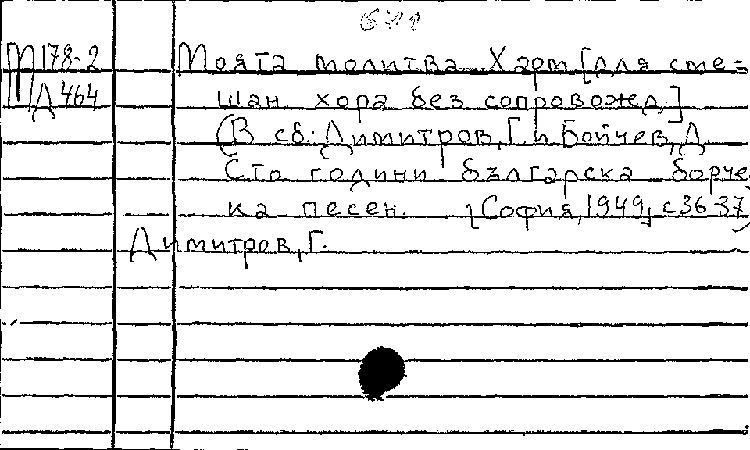 М 178-2 Моята молитва Харм. [для сме-
Д 464 шан. хора без сопровожд.]
(В сб.: Димитров, Г. и Бойчев, Д.
Сто години българска борче
ка песен. [София, 1949] с 36-37)
Димитров, Г.